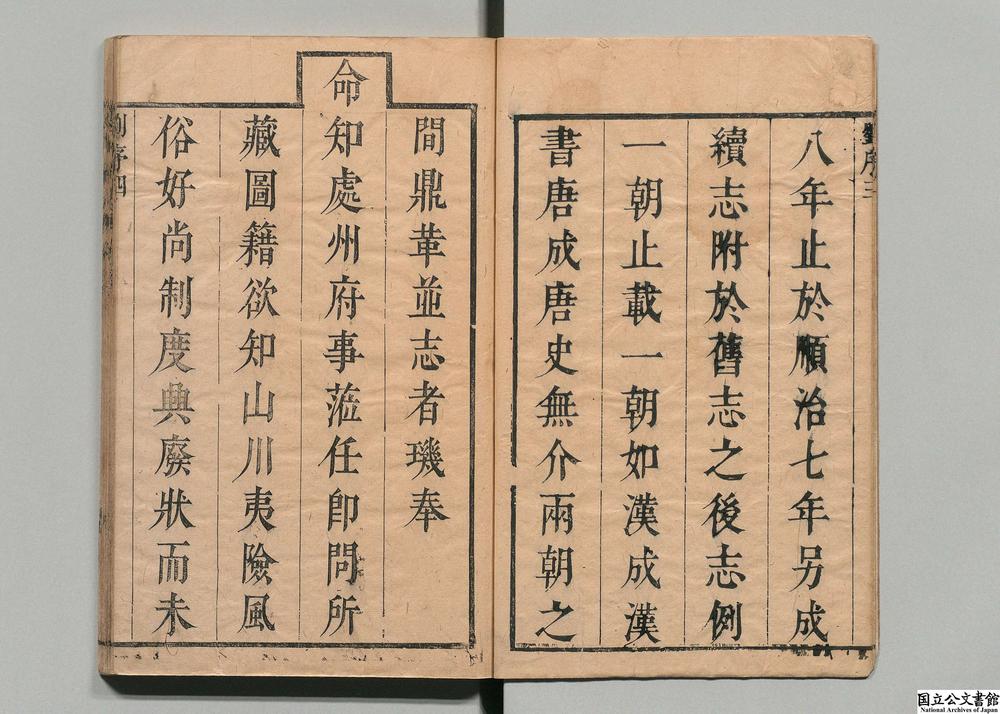 八年止於順治七年另成
續志附於舊志之後志例
一朝止載一朝如漢成漢
書唐成唐史無介兩朝之
劉序三
間鼎革並志者璣奉
命知處州府事蒞任卽問所
藏圖籍欲知山川夷險風
俗好尚制度典廢狀而未
劉序四
国立公文書館
National Archives of Japan